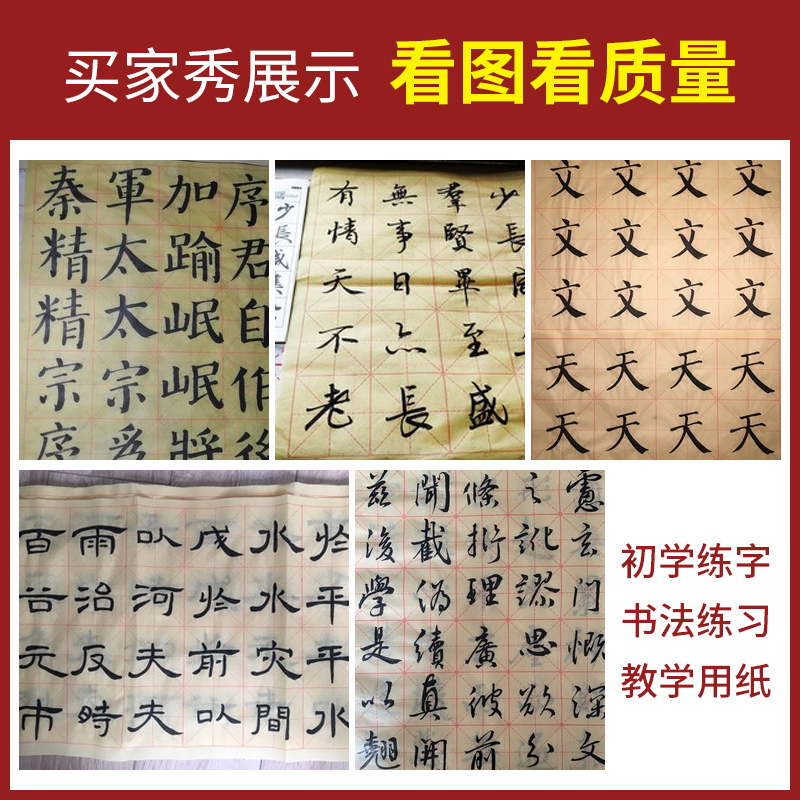 买家秀展示 看图看质量
秦軍加序
精太踰君
精太岷自
宗宗岷作
序為將後
有無羣少
情事賢長
天日畢咸
不亦至
老長盛
少長咸集
文文文文
文文文文
文文文文
天天天天
天天天天
百雨以戊水於
谷治河於水平
元反夫前灾平
市時夫以間水
茲聞條之慮
後截析訛玄
學偽理謬門
是續廣思慨
以真彼欲深
翹開前分文
初学练字
书法练习
教学用纸